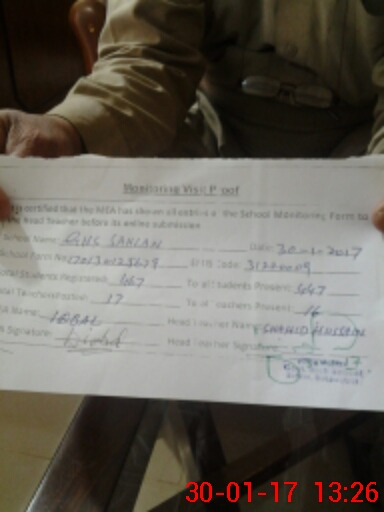 Monitoring Visit Proof
certified that the MEA has shown all entries of the School Monitoring Form to
the Head Teacher before its online submission
School Name: GHS SAHLAN Date: 30-01-2017
School Form No: EMIS Code:
Total Students Registered: 667 Total Students Present: 647
Total Teachers Posted: 17 Total Teachers Present: 16
MEA Name: IQBAL Head Teacher Name: SHAHID HUSSAIN
MEA Signature: Head Teacher Signature:
30-01-17 13:26